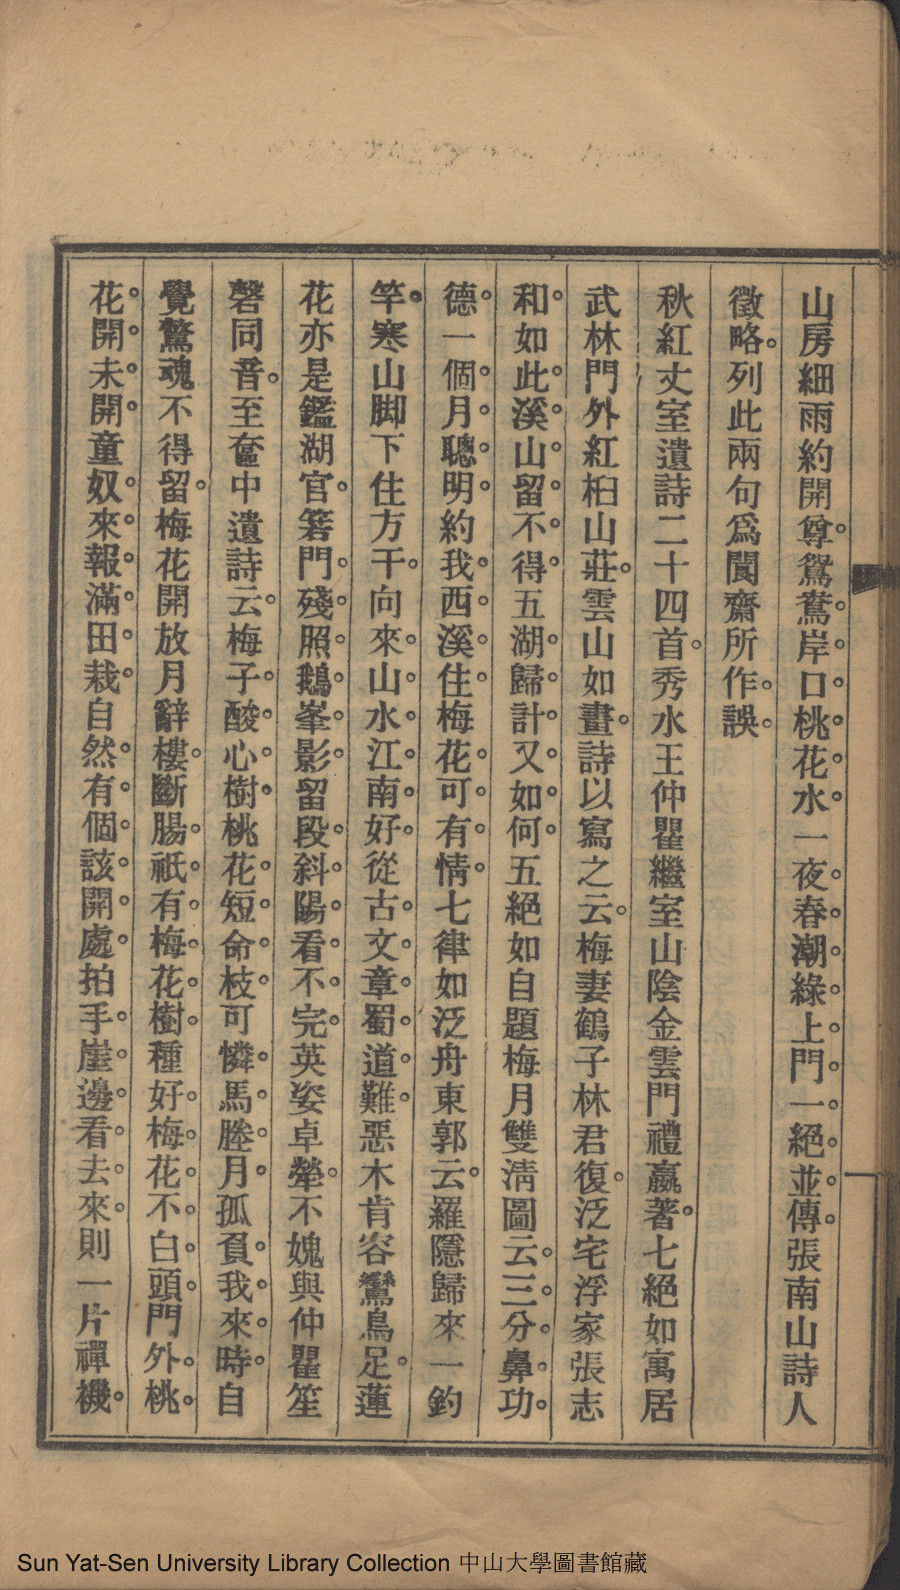 山房細雨約開尊。鴛鴦。岸。口。桃。花。水。一夜。春。潮。綠。上。門。一。絕。並。傳。張南山詩人
徵略。列此兩句爲閬齋所作。誤。
秋紅丈室遺詩二十四首。秀水王仲瞿繼室山陰金雲門禮嬴著。七絕如寓居
武林門外紅桕山莊。雲山如畫。詩以寫之云。梅妻鶴子林君復。泛宅浮家張志
和。如此。溪。山。留。不。得。五湖。歸。計。又。如。何。五絕如自題梅月雙淸圖云。三。分。鼻。功。
德。一個。月。聰。明。約我。西。溪。住。梅花。可。有。情。七律如泛舟東郭云。羅隱歸來一釣
竿。寒山脚下住方干。向來。山。水。江。南。好。從古。文。章。蜀。道。難。惡木肯容鸞鳥足。蓮
花亦是鑑湖官。箬門。殘。照。鵝。峯。影。留段。斜。陽。看。不。完。英姿卓犖。不媿與仲瞿笙
磬同音。至奩中遺詩云。梅子。酸。心。樹。桃花。短。命。枝。可憐。馬。塍。月。孤負。我。來。時。自
覺驚魂不得留。梅花開放月辭樓。斷腸。祇。有。梅。花。樹。種好。梅。花。不。白。頭。門外。桃。
花。開。未。開。童奴。來。報。滿。田。栽。自然。有。個。該。開。處。拍手。崖。邊。看。去。來。則一片禪機。
Sun Yat-Sen University Library Collection 中山大學圖書館藏